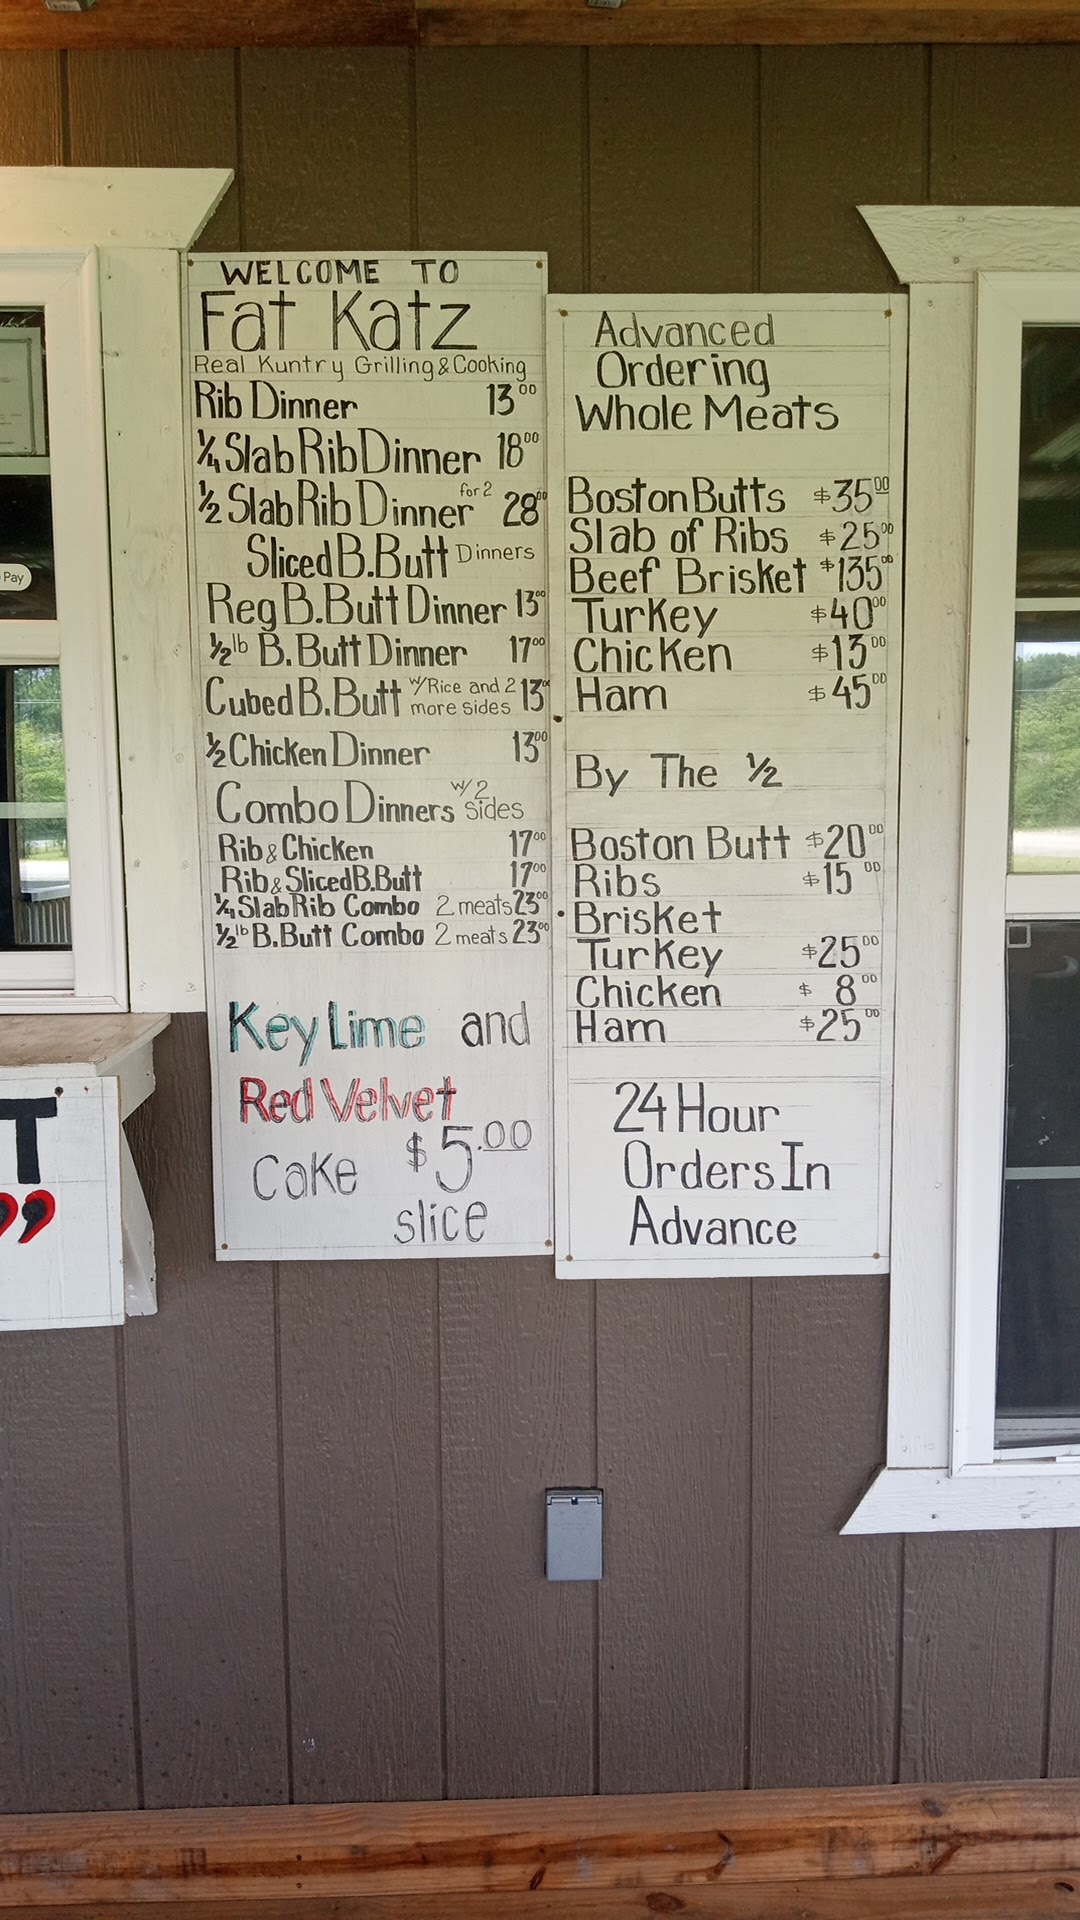 WELCOME TO
Fat Katz
Real Kuntry Grilling & Cooking
Rib Dinner 13.00
1/4 Slab Rib Dinner 18.00
1/2 Slab Rib Dinner for 2 28.00
Sliced B.Butt Dinners
Reg B.Butt Dinner 13.00
1/2 lb B.Butt Dinner 17.00
Cubed B.Butt w/Rice and 2 more sides 13.00
1/2 Chicken Dinner 13.00
Combo Dinners w/2 sides
Rib & Chicken 17.00
Rib & Sliced B.Butt 17.00
1/4 Slab Rib Combo 2 meats 23.00
1/2 lb B.Butt Combo 2 meats 23.00
Key Lime and
Red Velvet
Cake $5.00
slice
Advanced
Ordering
Whole Meats
Boston Butts $35.00
Slab of Ribs $25.00
Beef Brisket $135.00
Turkey $40.00
Chicken $13.00
Ham $45.00
By The 1/2
Boston Butt $20.00
Ribs $15.00
Brisket
Turkey $25.00
Chicken $8.00
Ham $25.00
24 Hour
Orders In
Advance
Pay
T
”